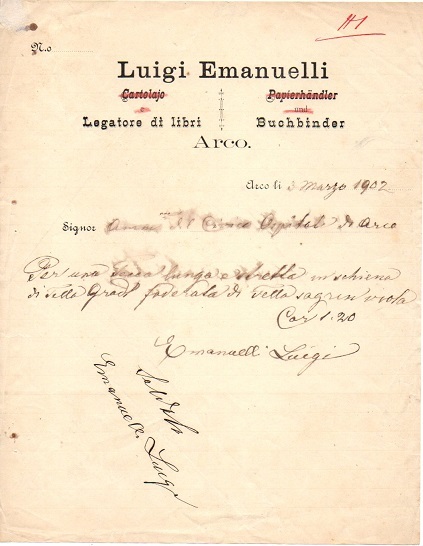 H1
N.o
Luigi Emanuelli
Cartolajo Papierhändler
e und
Legatore di libri Buchbinder
Arco.
Arco li 3 Marzo 1902
Signor Civico Ospital di Arco
Per una lunga e stretta in schiena
di Tella foderata di Tella sagrin viola
Cor 1.20
Emanuelli Luigi
Saldato
Emanuelli Luigi